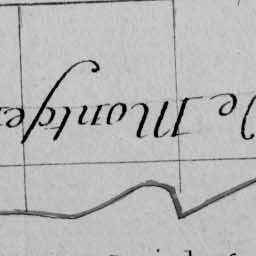 De Montge